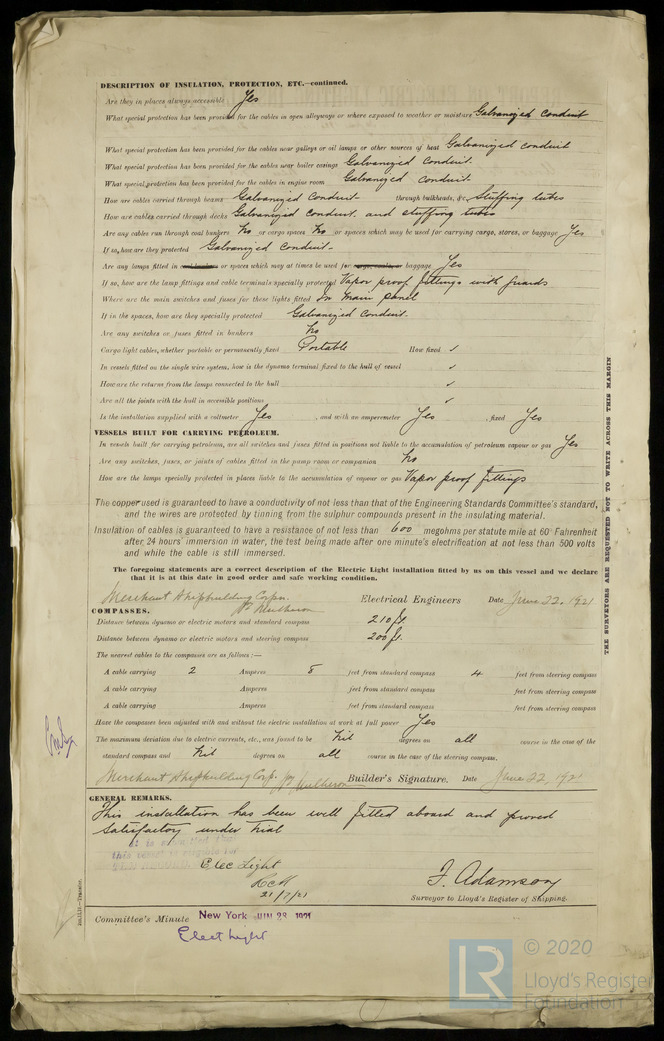 DESCRIPTION OF INSULATION, PROTECTION, ETC.—continued.
Are they in places always accessible Yes
What special protection has been provided for the cables in open alleyways or where exposed to weather or moisture Galvanized Conduit
What special protection has been provided for the cables near galleys or oil lamps or other sources of heat Galvanized conduit
What special protection has been provided for the cables near boiler casings Galvanized Conduit.
What special protection has been provided for the cables in engine room Galvanized conduit
How are cables carried through beams Galvanized Conduit through bulkheads, &c. Stuffing tubes
How are cables carried through decks Galvanized Conduit. and stuffing tubes
Are any cables run through coal bunkers No or cargo spaces No or spaces which may be used for carrying cargo, stores, or baggage Yes
If so, how are they protected Galvanized Conduit.
Are any lamps fitted in coal bunkers or spaces which may at times be used for cargo, coals, or baggage Yes
If so, how are the lamp fittings and cable terminals specially protected Vapor proof fittings with guards
Where are the main switches and fuses for these lights fitted In main panel
If in the spaces, how are they specially protected Galvanized Conduit.
Are any switches or fuses fitted in bunkers No
Cargo light cables, whether portable or permanently fixed Portable How fixed ✓
In vessels fitted on the single wire system, how is the dynamo terminal fixed to the hull of vessel ✓
How are the returns from the lamps connected to the hull ✓
Are all the joints with the hull in accessible positions ✓
Is the installation supplied with a voltmeter Yes , and with an amperemeter Yes , fixed Yes
VESSELS BUILT FOR CARRYING PETROLEUM.
In vessels built for carrying petroleum, are all switches and fuses fitted in positions not liable to the accumulation of petroleum vapour or gas Yes
Are any switches, fuses, or joints of cables fitted in the pump room or companion No
How are the lamps specially protected in places liable to the accumulation of vapour or gas Vapor proof fittings
The copper used is guaranteed to have a conductivity of not less than that of the Engineering Standards Committee's standard,
and the wires are protected by tinning from the sulphur compounds present in the insulating material.
Insulation of cables is guaranteed to have a resistance of not less than 600 megohms per statute mile at 60° Fahrenheit
after 24 hours' immersion in water, the test being made after one minute's electrification at not less than 500 volts
and while the cable is still immersed.
The foregoing statements are a correct description of the Electric Light installation fitted by us on this vessel and we declare
that it is at this date in good order and safe working condition.
Merchant Shipbuilding Corpn. Electrical Engineers Date June 22, 1921
COMPASSES.
Distance between dynamo or electric motors and standard compass 210 ft.
Distance between dynamo or electric motors and steering compass 200 ft.
The nearest cables to the compasses are as follows:—
A cable carrying 2 Amperes 8 feet from standard compass 4 feet from steering compass
A cable carrying Amperes feet from standard compass feet from steering compass
A cable carrying Amperes feet from standard compass feet from steering compass
Have the compasses been adjusted with and without the electric installation at work at full power Yes
The maximum deviation due to electric currents, etc., was found to be Nil degrees on all course in the case of the
standard compass and Nil degrees on all course in the case of the steering compass.
Merchant Shipbuilding Corp. Builder's Signature. Date June 22, 1921
GENERAL REMARKS.
This installation has been well fitted aboard and proved
satisfactory under trial
It is submitted that
this vessel is eligible for
Elec Light
21/7/21
F. Adamson
Surveyor to Lloyd's Register of Shipping.
Committee's Minute New York JUN 28 1921
Elect Light
THE SURVEYORS ARE REQUESTED NOT TO WRITE ACROSS THIS MARGIN
LR
© 2020
Lloyd's Register
Foundation